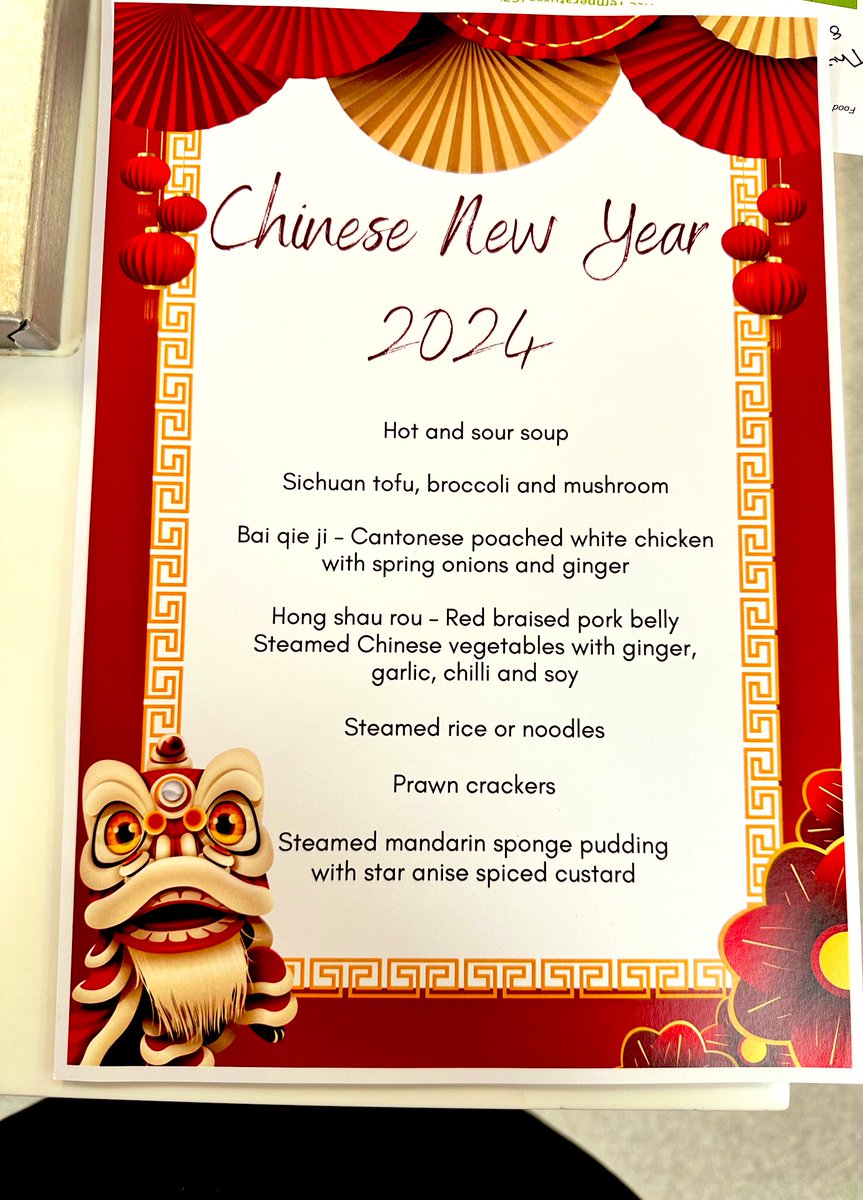 Chinese New Year
2024
Hot and sour soup
Sichuan tofu, broccoli and mushroom
Bai qie ji – Cantonese poached white chicken
with spring onions and ginger
Hong shau rou – Red braised pork belly
Steamed Chinese vegetables with ginger,
garlic, chilli and soy
Steamed rice or noodles
Prawn crackers
Steamed mandarin sponge pudding
with star anise spiced custard
Food